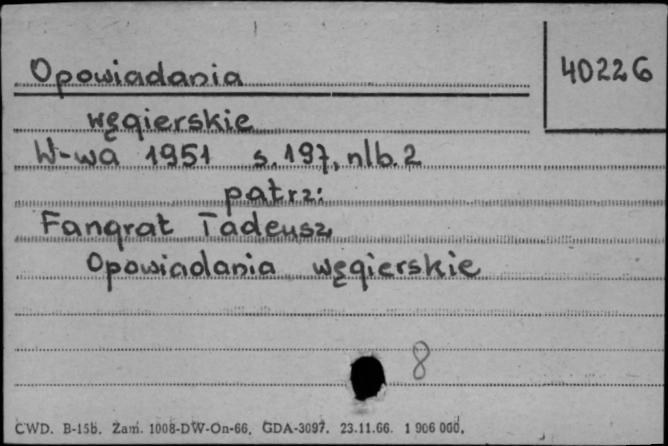 Opowiadania
40226
węgierskie
W-wa 1951 s. 197, nlb. 2
patrz:
Fangrat Tadeusz
Opowiadania węgierskie
8
CWD. B-15b. Zam. 1008-DW-On-66. GDA-3097. 23.11.66. 1 906 000.